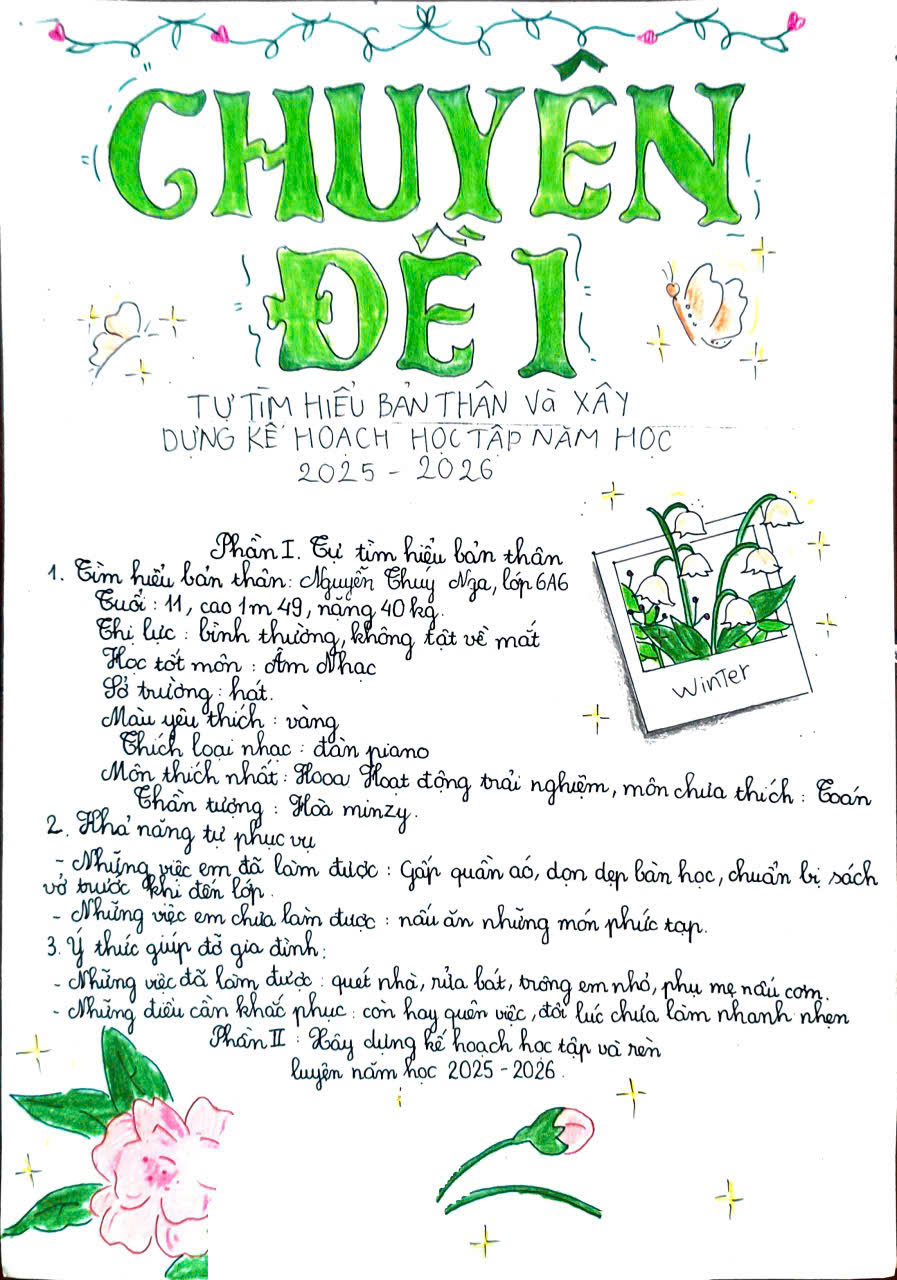 CHUYÊN
ĐỀ 1
TỰ TÌM HIỂU BẢN THÂN Và XÂY
DỰNG KẾ HOẠCH HỌC TẬP NĂM HỌC
2025 - 2026
Phần I. Tự tìm hiểu bản thân
1. Tìm hiểu bản thân: Nguyễn Thuý Nga, lớp 6A6
Tuổi : 11, cao 1m 49, nặng 40 kg.
Thị lực : bình thường, không tật về mắt
Học tốt môn : Âm Nhạc
Sở trường : hát.
Màu yêu thích : vàng
Thích loại nhạc : đàn piano
Môn thích nhất : Hooa Hoạt động trải nghiệm, môn chưa thích : Toán
Thần tượng : Hoà minzy.
2. Khả năng tự phục vụ
- Những việc em đã làm được : Gấp quần áo, dọn dẹp bàn học, chuẩn bị sách
vở trước khi đến lớp.
- Những việc em chưa làm được : nấu ăn những món phức tạp.
3. Ý thức giúp đỡ gia đình:
- Những việc đã làm được : quét nhà, rửa bát, trông em nhỏ, phụ mẹ nấu cơm.
- Những điều cần khắc phục : còn hay quên việc, đôi lúc chưa làm nhanh nhẹn
Phần II : Xây dựng kế hoạch học tập và rèn
luyện năm học 2025 - 2026.
winter